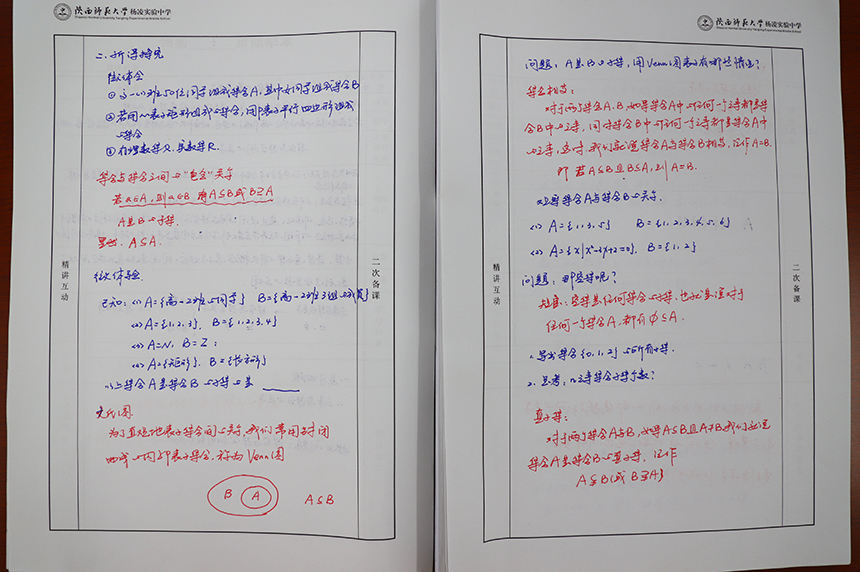 陕西师范大学杨凌实验中学
二、新课探究
① 高一(1)班50位同学组成集合A,其中女同学组成集合B
组成
集合
③ 有理数集Q,实数集R.
集合与集合之间的"包含"关系
若a∈A,则a∈B 有A⊆B或B⊇A
A是B的子集.
显然. A⊆A.
已知: (1) A={高一2班的同学} B={高一2班3组的成员}
(2) A={1,2,3}, B={1,2,3,4}
(3) A=N, B=Z;
(4) A={矩形}, B={长方形}
以上集合A是集合B的子集的是
韦氏图
为了直观地表示集合间的关系,我们常用封闭
曲线的内部表示集合,称为Venn图
B A A⊆B
精讲互动
二次备课
陕西师范大学杨凌实验中学
问题: A是B的子集,用Venn图表示有哪些情况?
集合相等:
对于两个集合A、B,如果集合A中的任何一个元素都是集
合B中的元素,同时集合B中的任何一个元素都是集合A中
的元素,这时,我们就说集合A与集合B相等,记作A=B.
即 若A⊆B且B⊆A,则A=B.
观察集合A与集合B的关系.
(1) A={1,3,5} B={1,2,3,4,5,6}
(2) A={x|x²-3x+2=0}, B={1,2}
问题: 那空集呢?
规定: 空集是任何集合的子集,也就是说对于
任何一个集合A,都有∅⊆A.
1. 写出集合{0,1,2}的所有子集.
2. 思考: n元素集合子集个数?
真子集:
对于两个集合A与B,如果A⊆B且A≠B,我们就说
集合A是集合B的真子集,记作
A⫋B(或B⫌A)
精讲互动
二次备课